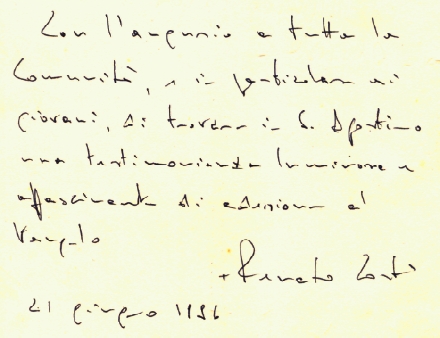 Con l'augurio a tutta la
Comunità, e in particolare ai
giovani, di trovare in S. Agostino
una testimonianza luminosa e
affascinante di adesione al
Vangelo
+ Renato Corti
21 giugno 1996